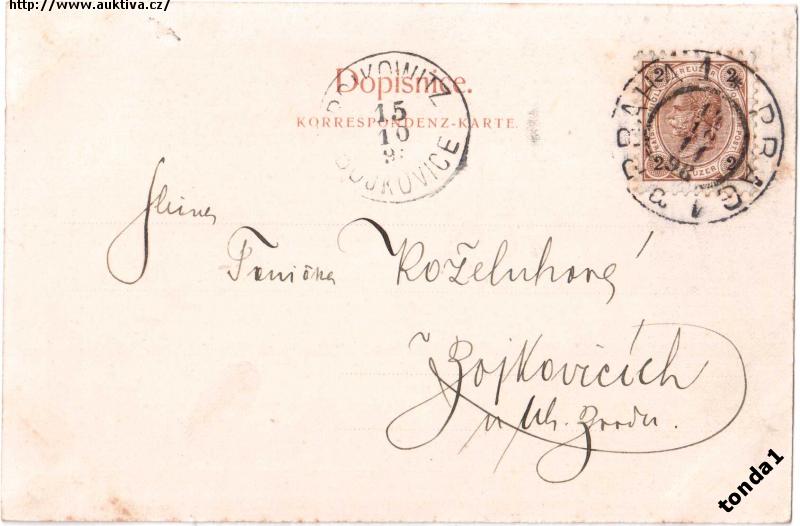 http://www.auktiva.cz/
Dopisnice.
KORRESPONDENZ-KARTE.
BOJKOWITZ
15
10
9
BOJKOVICE
PRAHA 1 PRAG 1
98
2 2
2 2
Slečna
Tonička Koželuhová
v Bojkovicích
u Uh. Brodu.
tonda1